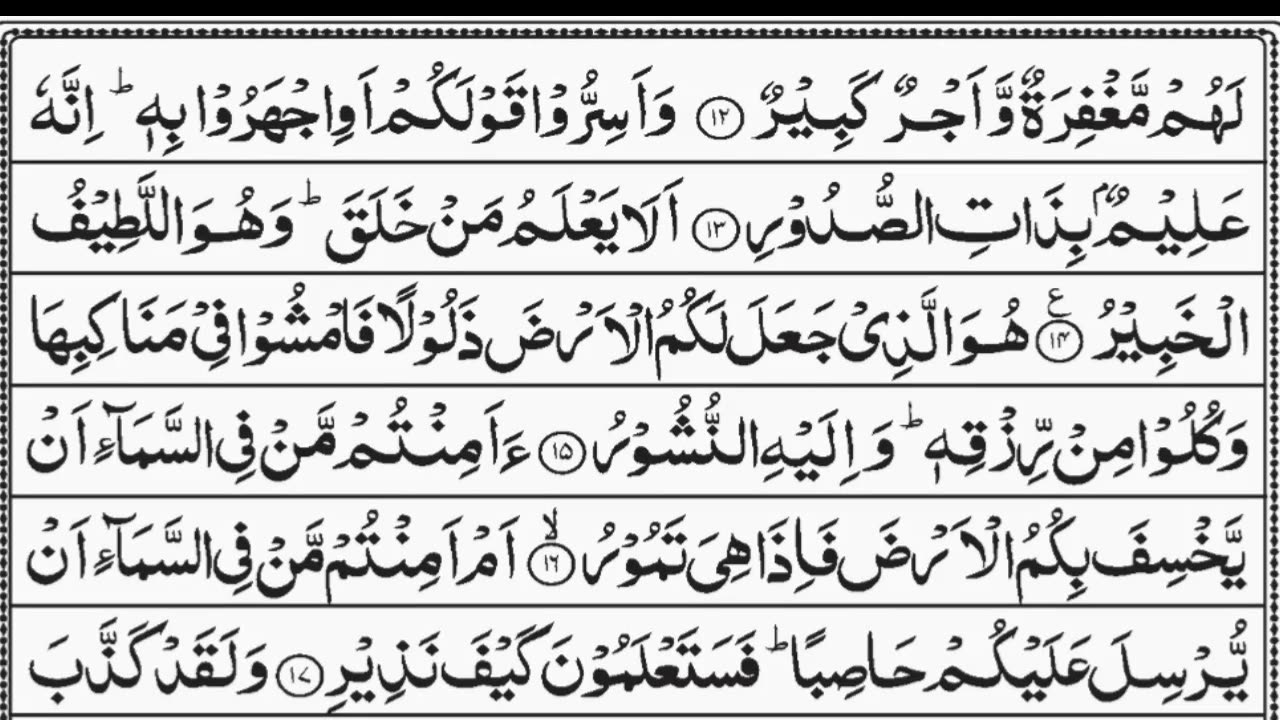 لَهُمْ مَّغْفِرَةٌ وَّ اَجْرٌ كَبِيْرٌ ﴿۱۲﴾ وَ اَسِرُّوْا قَوْلَكُمْ اَوِ اجْهَرُوْا بِهٖ ؕ اِنَّهٗ
عَلِيْمٌۢ بِذَاتِ الصُّدُوْرِ ﴿۱۳﴾ اَلَا يَعْلَمُ مَنْ خَلَقَ ؕ وَ هُوَ اللَّطِيْفُ
الْخَبِيْرُ ﴿۱۴﴾ۧ هُوَ الَّذِيْ جَعَلَ لَكُمُ الْاَرْضَ ذَلُوْلًا فَامْشُوْا فِيْ مَنَاكِبِهَا
وَ كُلُوْا مِنْ رِّزْقِهٖ ؕ وَ اِلَيْهِ النُّشُوْرُ ﴿۱۵﴾ ءَاَمِنْتُمْ مَّنْ فِي السَّمَآءِ اَنْ
يَّخْسِفَ بِكُمُ الْاَرْضَ فَاِذَا هِيَ تَمُوْرُ ﴿۱۶﴾ۙ اَمْ اَمِنْتُمْ مَّنْ فِي السَّمَآءِ اَنْ
يُّرْسِلَ عَلَيْكُمْ حَاصِبًا ؕ فَسَتَعْلَمُوْنَ كَيْفَ نَذِيْرِ ﴿۱۷﴾ وَ لَقَدْ كَذَّبَ